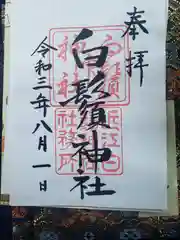 奉拝
白鬚神社
令和三年八月一日
社務所